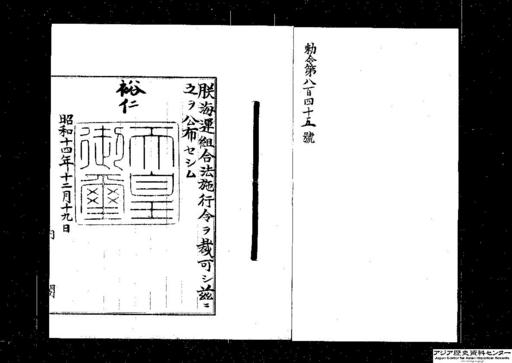 勅令第八百四十五號
朕海運組合法施行令ヲ裁可シ茲ニ
之ヲ公布セシム
裕仁
天皇
御璽
昭和十四年十二月十九日
内閣
アジア歴史資料センター
Japan Center for Asian Historical Records